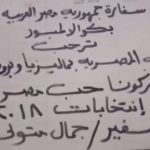 سفارة جمهورية مصر العربية
بكوالالمبور
ترحب
المصرية بماليزيا وبرو
شاركونا حب مصر
إنتخابات ٢٠١٨
سفير / جمال متولى